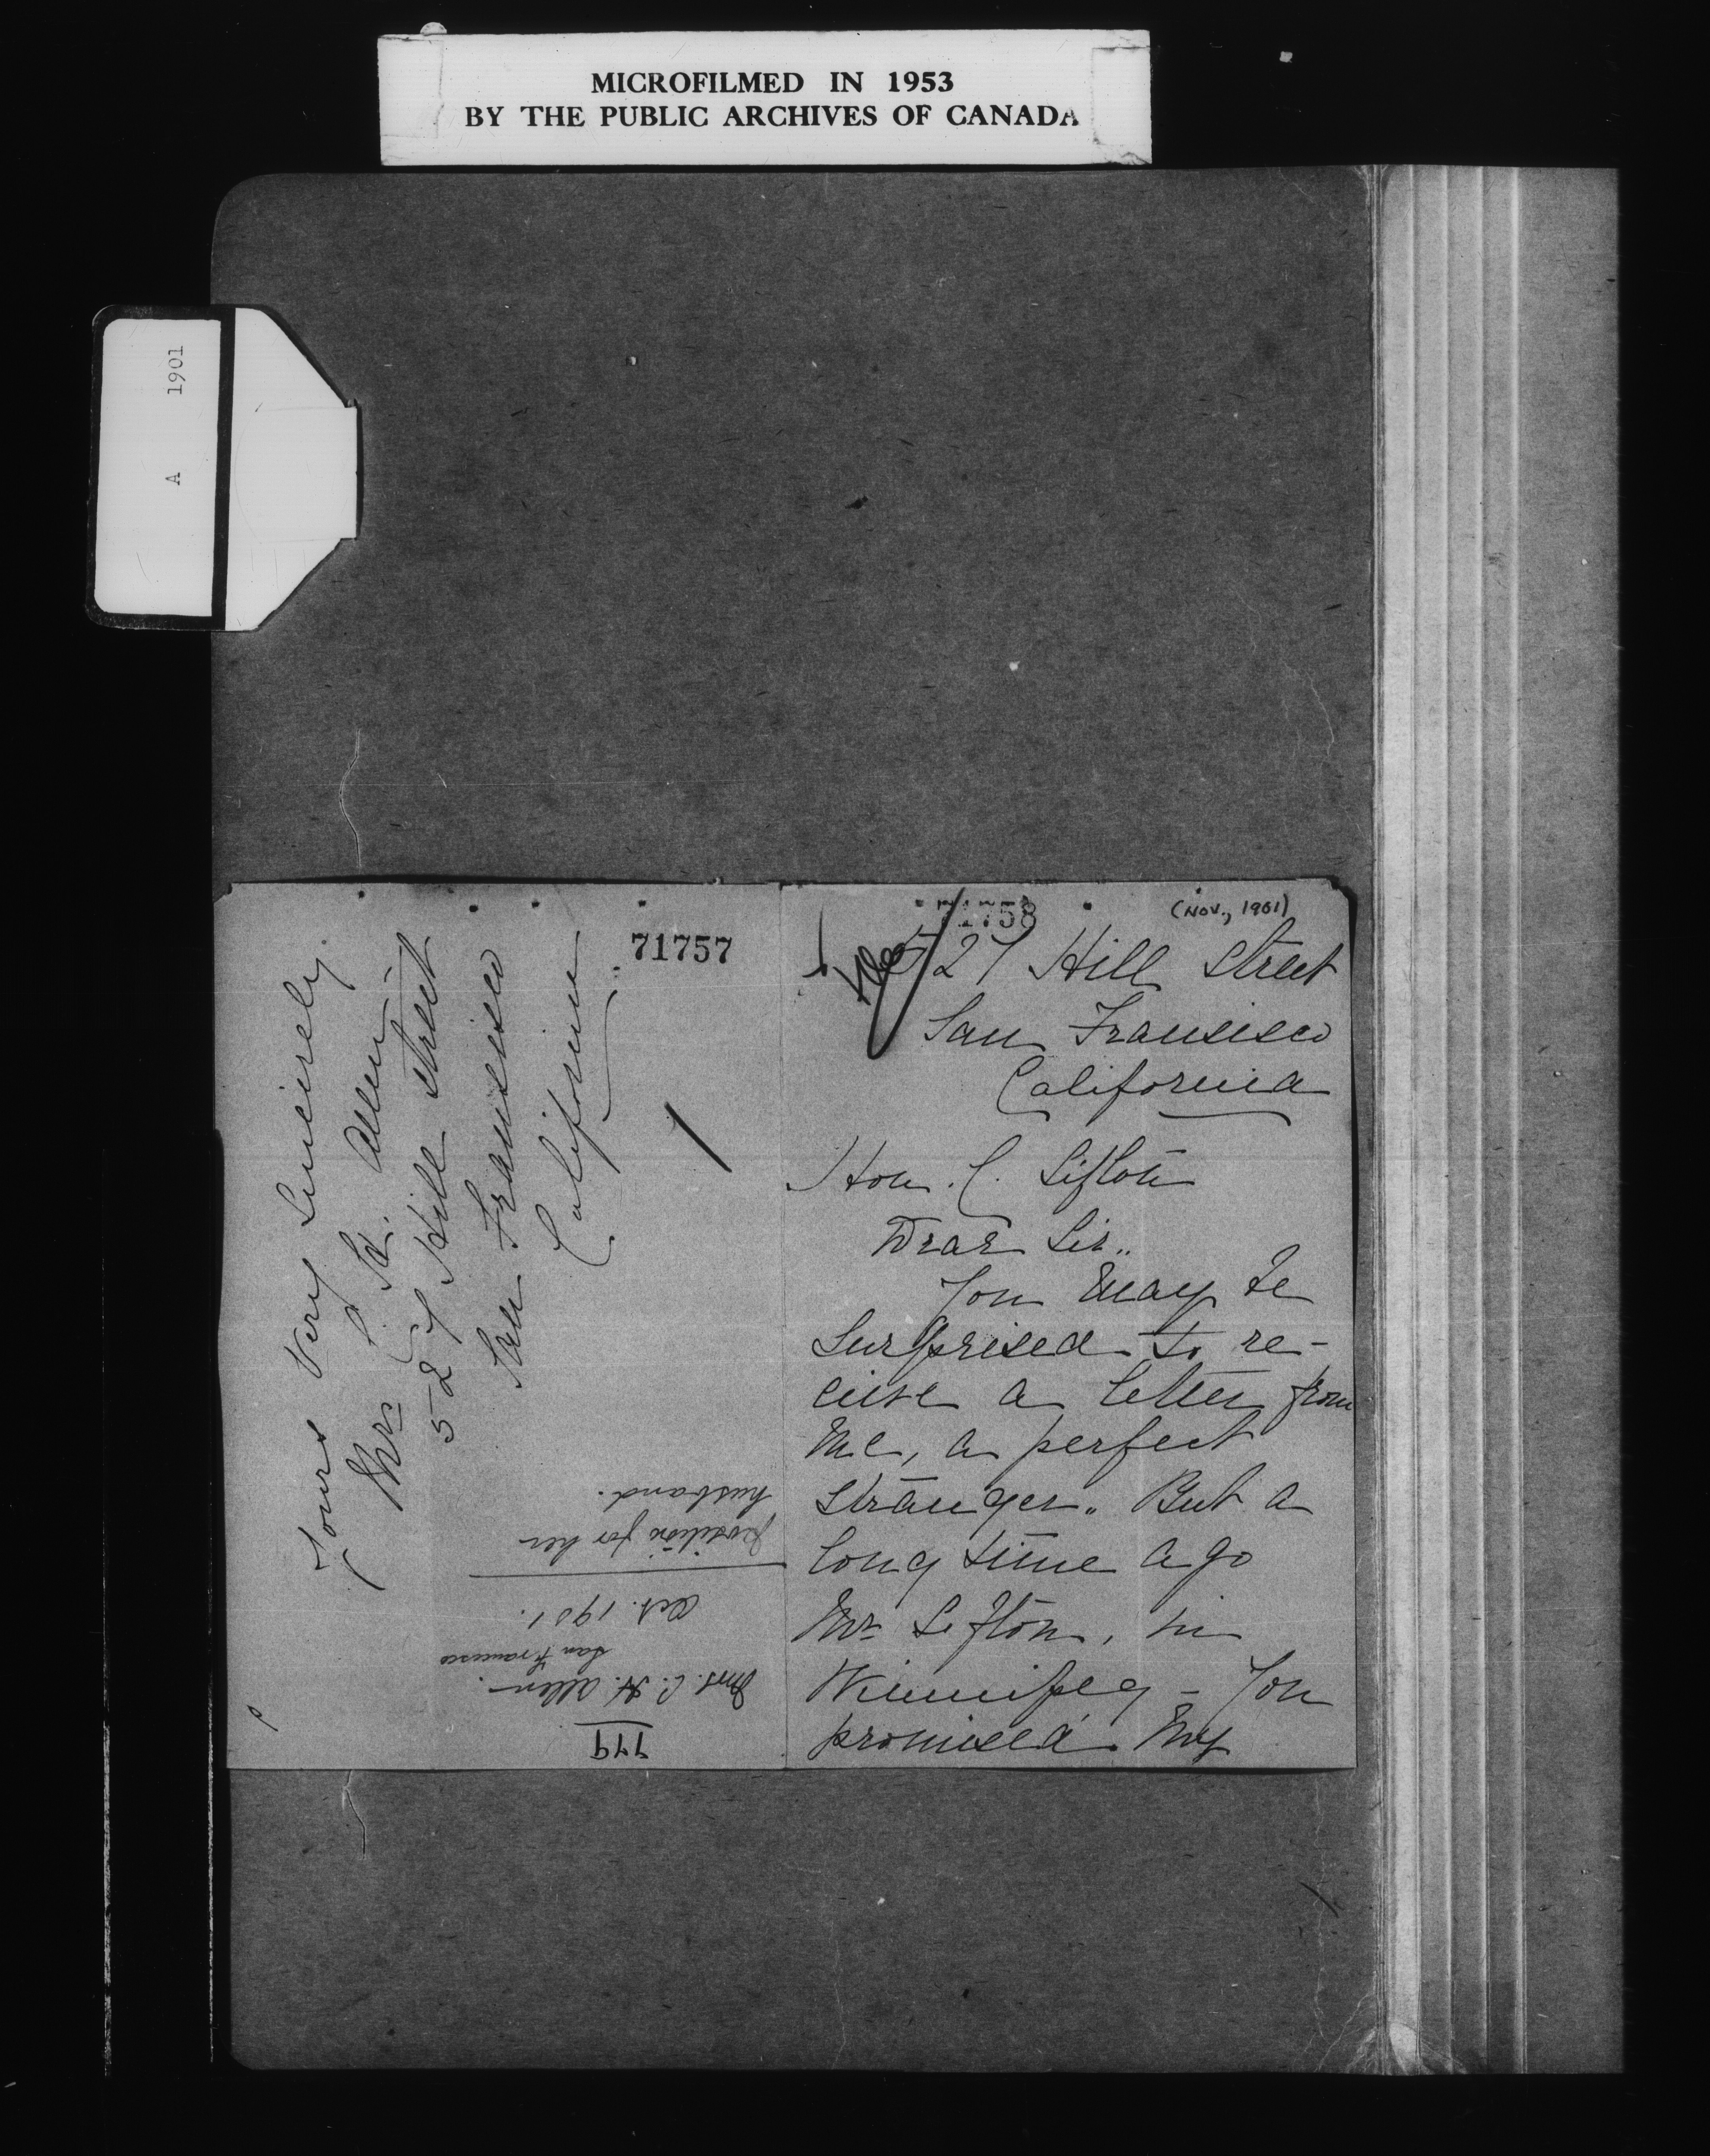 MICROFILMED IN 1953
BY THE PUBLIC ARCHIVES OF CANADA
A 1901
71757
Yours Very Sincerely
Mrs C. H. Allen
527 Hill Street
San Fransisco
California
husband.
position for her
Oct. 1901.
San Francisco
Mrs. C. H. Allen.
779
71758
(NOV., 1901)
527 Hill Street
San Fransisco
California
Hon. C. Sifton
Dear Sir..
You may be
surprised to re-
cieve a letter from
me, a perfect
stranger.. But a
long time ago
Mr Sifton, in
Winnipeg – You
promised my